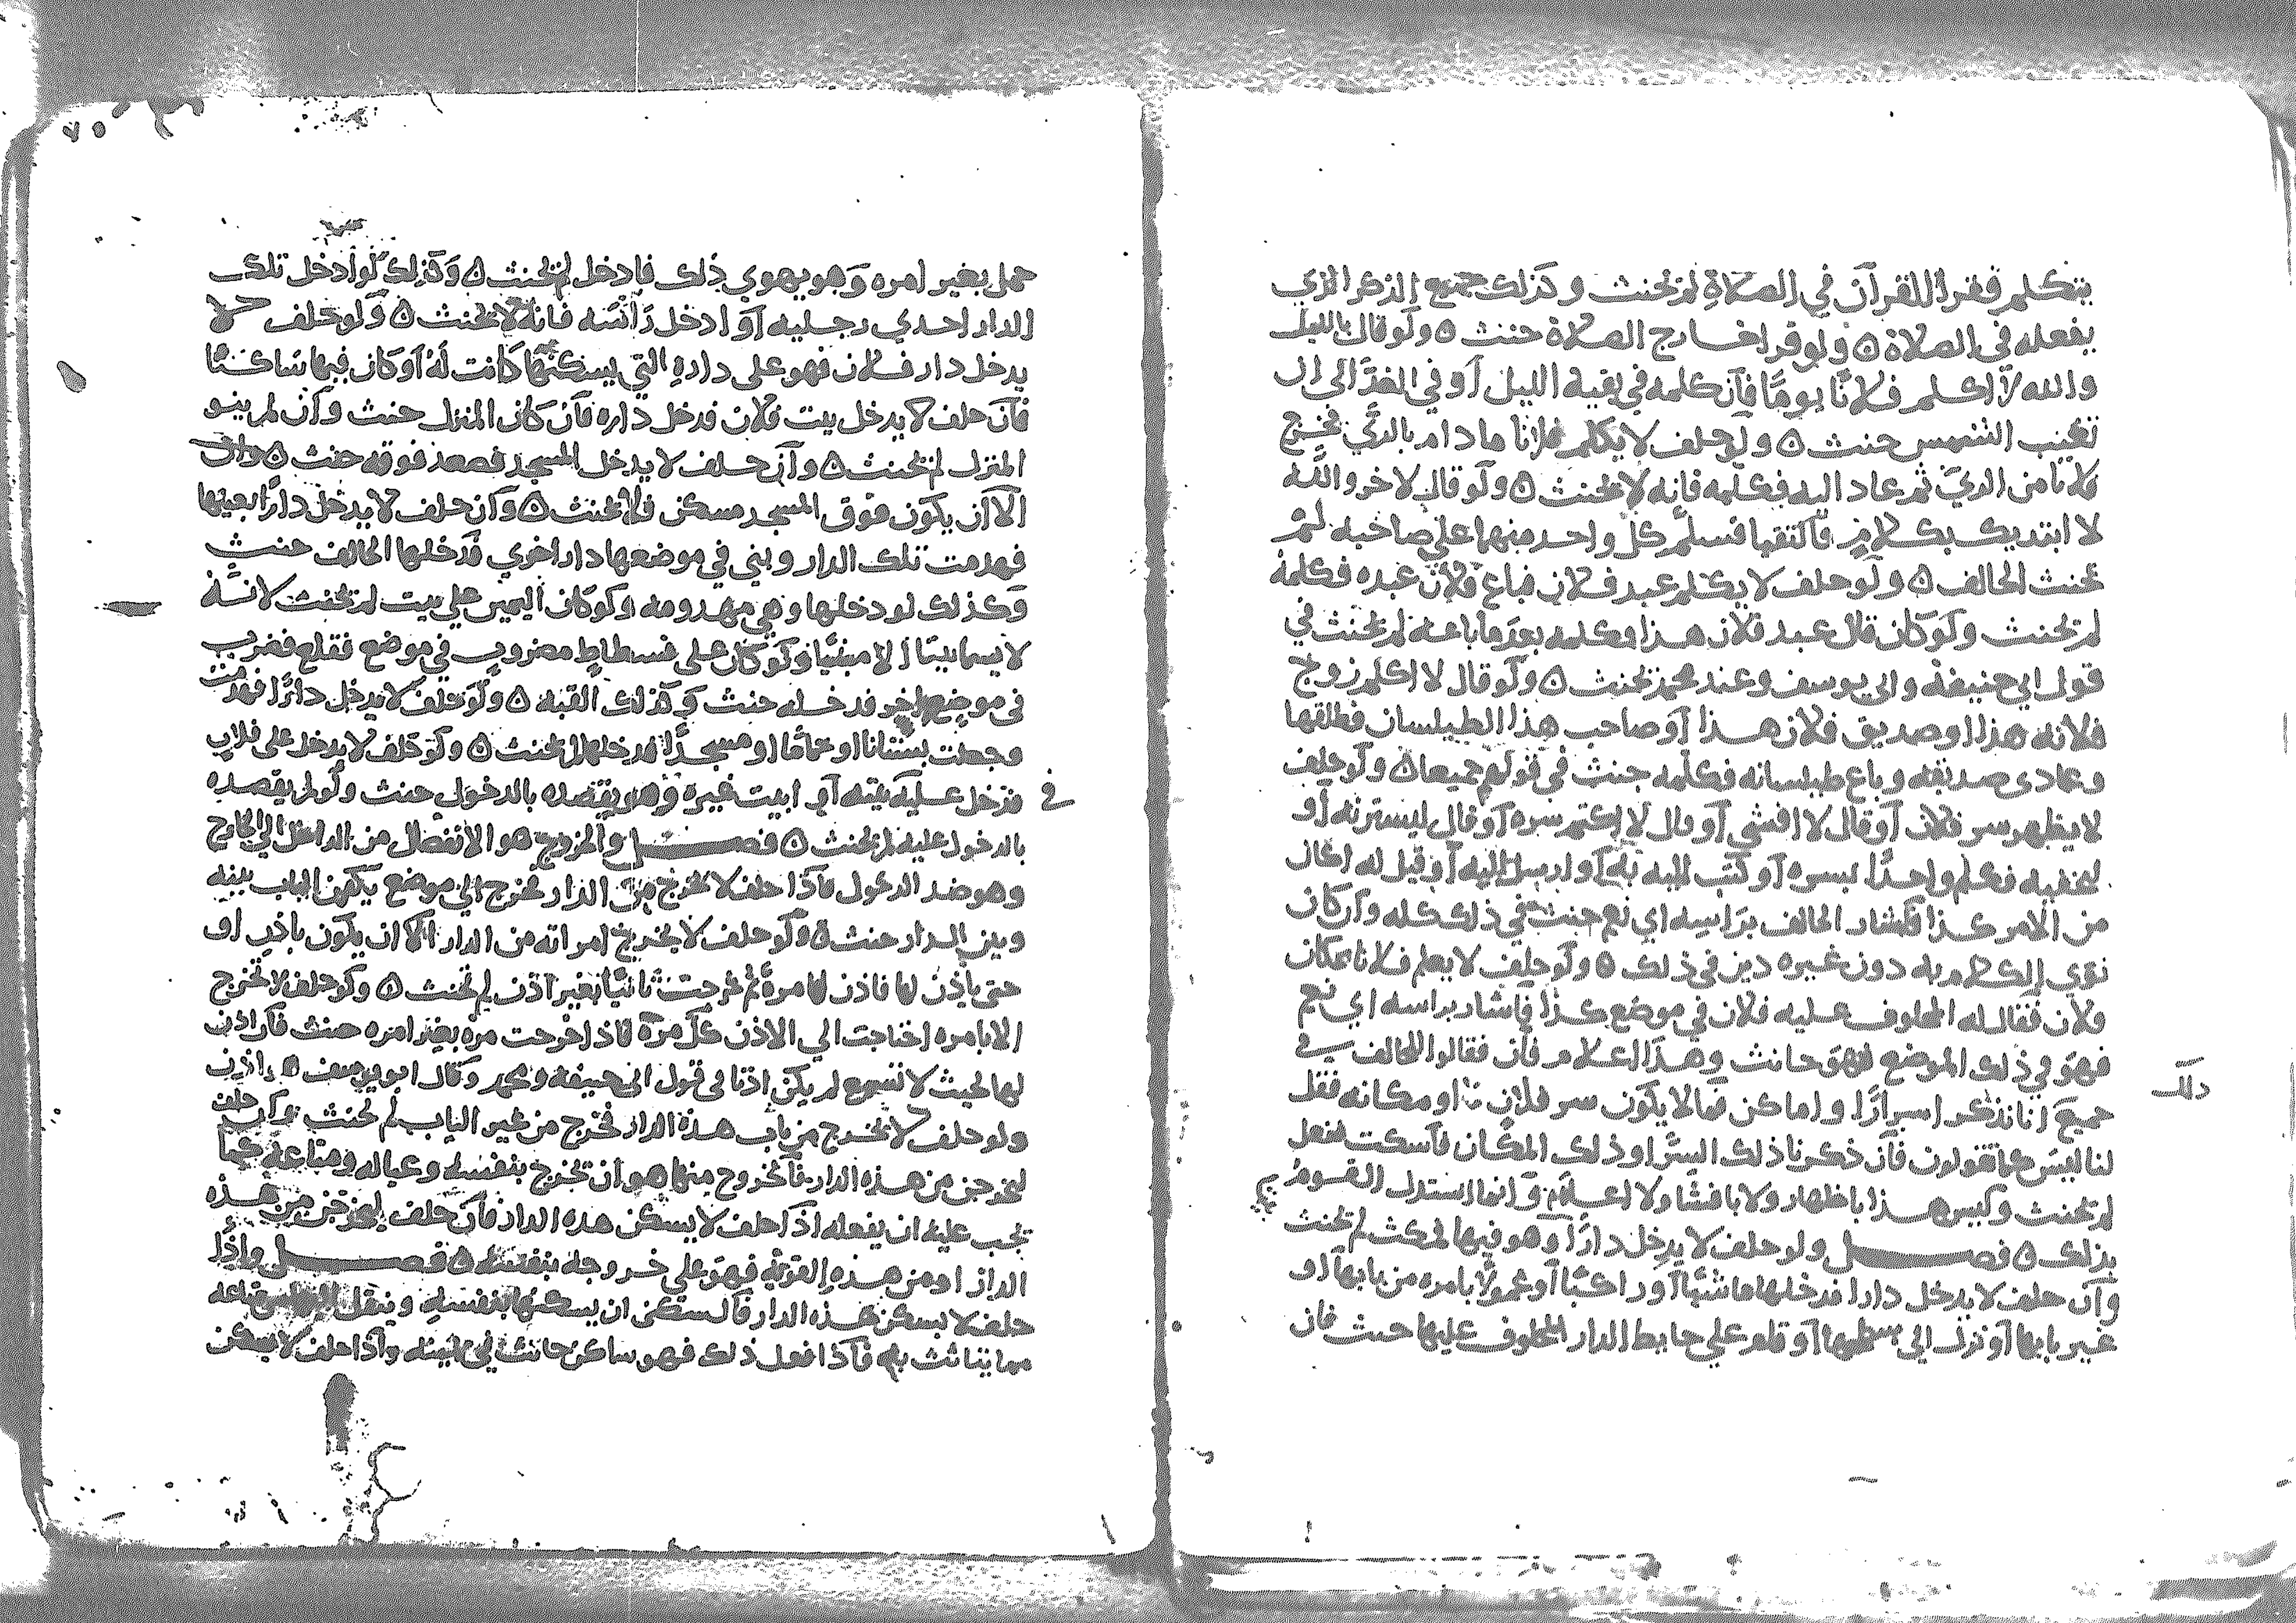 يتكلم فقرا للقرآن في الصلاة لم يحنث وكذلك جميع الذكر الذي
يفعله في الصلاة ٥ ولو قرا خارج الصلاة حنث ٥ ولو قال بالليل
والله لا اكلم فلانا يوما فان كلمه في بقية الليل او في الغد الى ان
تغيب الشمس حنث ٥ ولو حلف لا يكلم فلانا ما دام بالري فخرج
فلانا من الري ثم عاد اليه فكلمه فانه لا يحنث ٥ ولو قال لاخر والله
لا ابتديك بكلام فالتقيا فسلم كل واحد منهما علي صاحبه لم
يحنث الحالف ٥ ولو حلف لا يكلم عبد فلان فباع فلان عبده فكلمه
لم يحنث ولو كان قال عبد فلان هذا فكلمه بعد ما باعه لم يحنث في
قول ابي حنيفة وابى يوسف وعند محمد يحنث ٥ ولو قال لا اكلم زوج
فلانه هذا او صديق فلان هذا او صاحب هذا الطيلسان فطلقها
وعادى صديقه وباع طيلسانه فكلمه حنث في قولهم جميعا ٥ ولو حلف
لا يظهر سر فلان او قال لا افشي او قال لاكتم سره او قال ليسترنه او
ليخفيه فكلم واحدا بسره او كتب اليه به او ارسل اليه او قيل له اكان
من الامر كذا فاشار الحالف براسه اي نعم حنث في ذلك كله وان كان
نوي الكلام به دون غيره دين في ذلك ٥ ولو حلف لا يعلم فلانا بمكان
فلان فقال له المحلوف عليه فلان في موضع كذا فاشار براسه اي نعم
فهو في ذلك الموضع فهو حانث وهذا اعلام فان فقالوا للحالف في
ذلك
جميع انا نذكر اسرارا واماكن فما لا يكون سر فلان او مكانه فقل
لنا ليس كما تقولون فان ذكرنا ذلك السر او ذلك المكان فاسكت ففعل
لم يحنث وليس هذا باظهار ولا بافشا ولا اعلام وانما استدل القوم
بذلك ٥ فصل ولو حلف لا يدخل دارا وهو فيها فمكث لم يحنث
وان حلف لا يدخل دارا فدخلها ماشيا او راكبا او محمولا بامره من بابها او
غير بابها او نزل الي سطحها او قام علي حايط الدار المحلوف عليها حنث فان
حمل بغير امره وهو يهوي ذلك فادخل لم يحنث ٥ وكذلك لو ادخل تلك
الدار احدي رجليه او ادخل راسه فانه لا يحنث ٥ ولو حلف لا
يدخل دار فلان فهو على داره التي يسكنها كانت له او كان فيها ساكنا
فان حلف لا يدخل بيت فلان فدخل داره فان كان المنزل حنث وان لم ينو
المنزل لم يحنث ٥ وان حلف لا يدخل المسجد فصعد فوقه حنث ٥
الا ان يكون فوق المسجد مسكن فلا يحنث ٥ وان حلف لا يدخل دارا بعينها
فهدمت تلك الدار وبني في موضعها دار اخري فدخلها الحالف حنث
وكذلك لو دخلها وهي مهدومه ولو كان اليمين علي بيت لم يحنث لانه
لا يسما بيتا الا مبنيا ولو كان على فسطاط مضروب في موضع فقلع فضرب
في موضع اخر فدخله حنث وكذلك القبه ٥ ولو حلف لا يدخل دارا فهدمت
وجعلت بستانا او حماما او مسجدا فدخلها لم يحنث ٥ ولو حلف لا يدخل على فلان
فدخل عليه بيته او بيت غيره وهو يقصده بالدخول حنث ولو لم يقصده
في
بالدخول عليه لم يحنث ٥ فصل والخروج هو الانفصال من الداخل الي الخارج
وهو ضد الدخول فاذا حلف لا يخرج من الدار فخرج الي موضع يكون الباب بينه
وبين الدار حنث ٥ ولو حلف لا يخرج امراته من الدار الا ان يكون باذن او
حتى ياذن لها فاذن لها مرة ثم خرجت ثانيا بغير اذن لم يحنث ٥ ولو حلف لا تخرج
الا بامره احتاجت الي الاذن كل مرة فاذا خرجت مره بغير امره حنث فان اذن
لها بحيث لا تسمع لم يكن اذنا في قول ابي حنيفه ومحمد وقال ابو يوسف
ولو حلف لا يخرج من باب هذه الدار فخرج من غير الباب لم يحنث وان حلف
ليخرجن من هذه الدار فالخروج منها هو ان يخرج بنفسه وعياله ومتاعه كما
يجب عليه ان يفعله اذا حلف لا يسكن هذه الدار فان حلف ليخرجن من هذه
الدار او من هذه القرية فهو علي خروجه بنفسه ٥ فصل واذا
حلف لا يسكن هذه الدار فالسكن ان يسكنها بنفسه وينقل اليها متاعه
مما يتاثث به فاذا فعل ذلك فهو ساكن حانث في يمينه واذا حلف لا يسكن